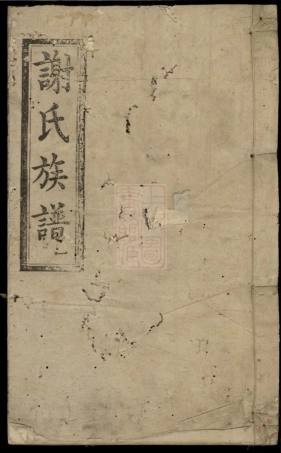 謝氏族譜一